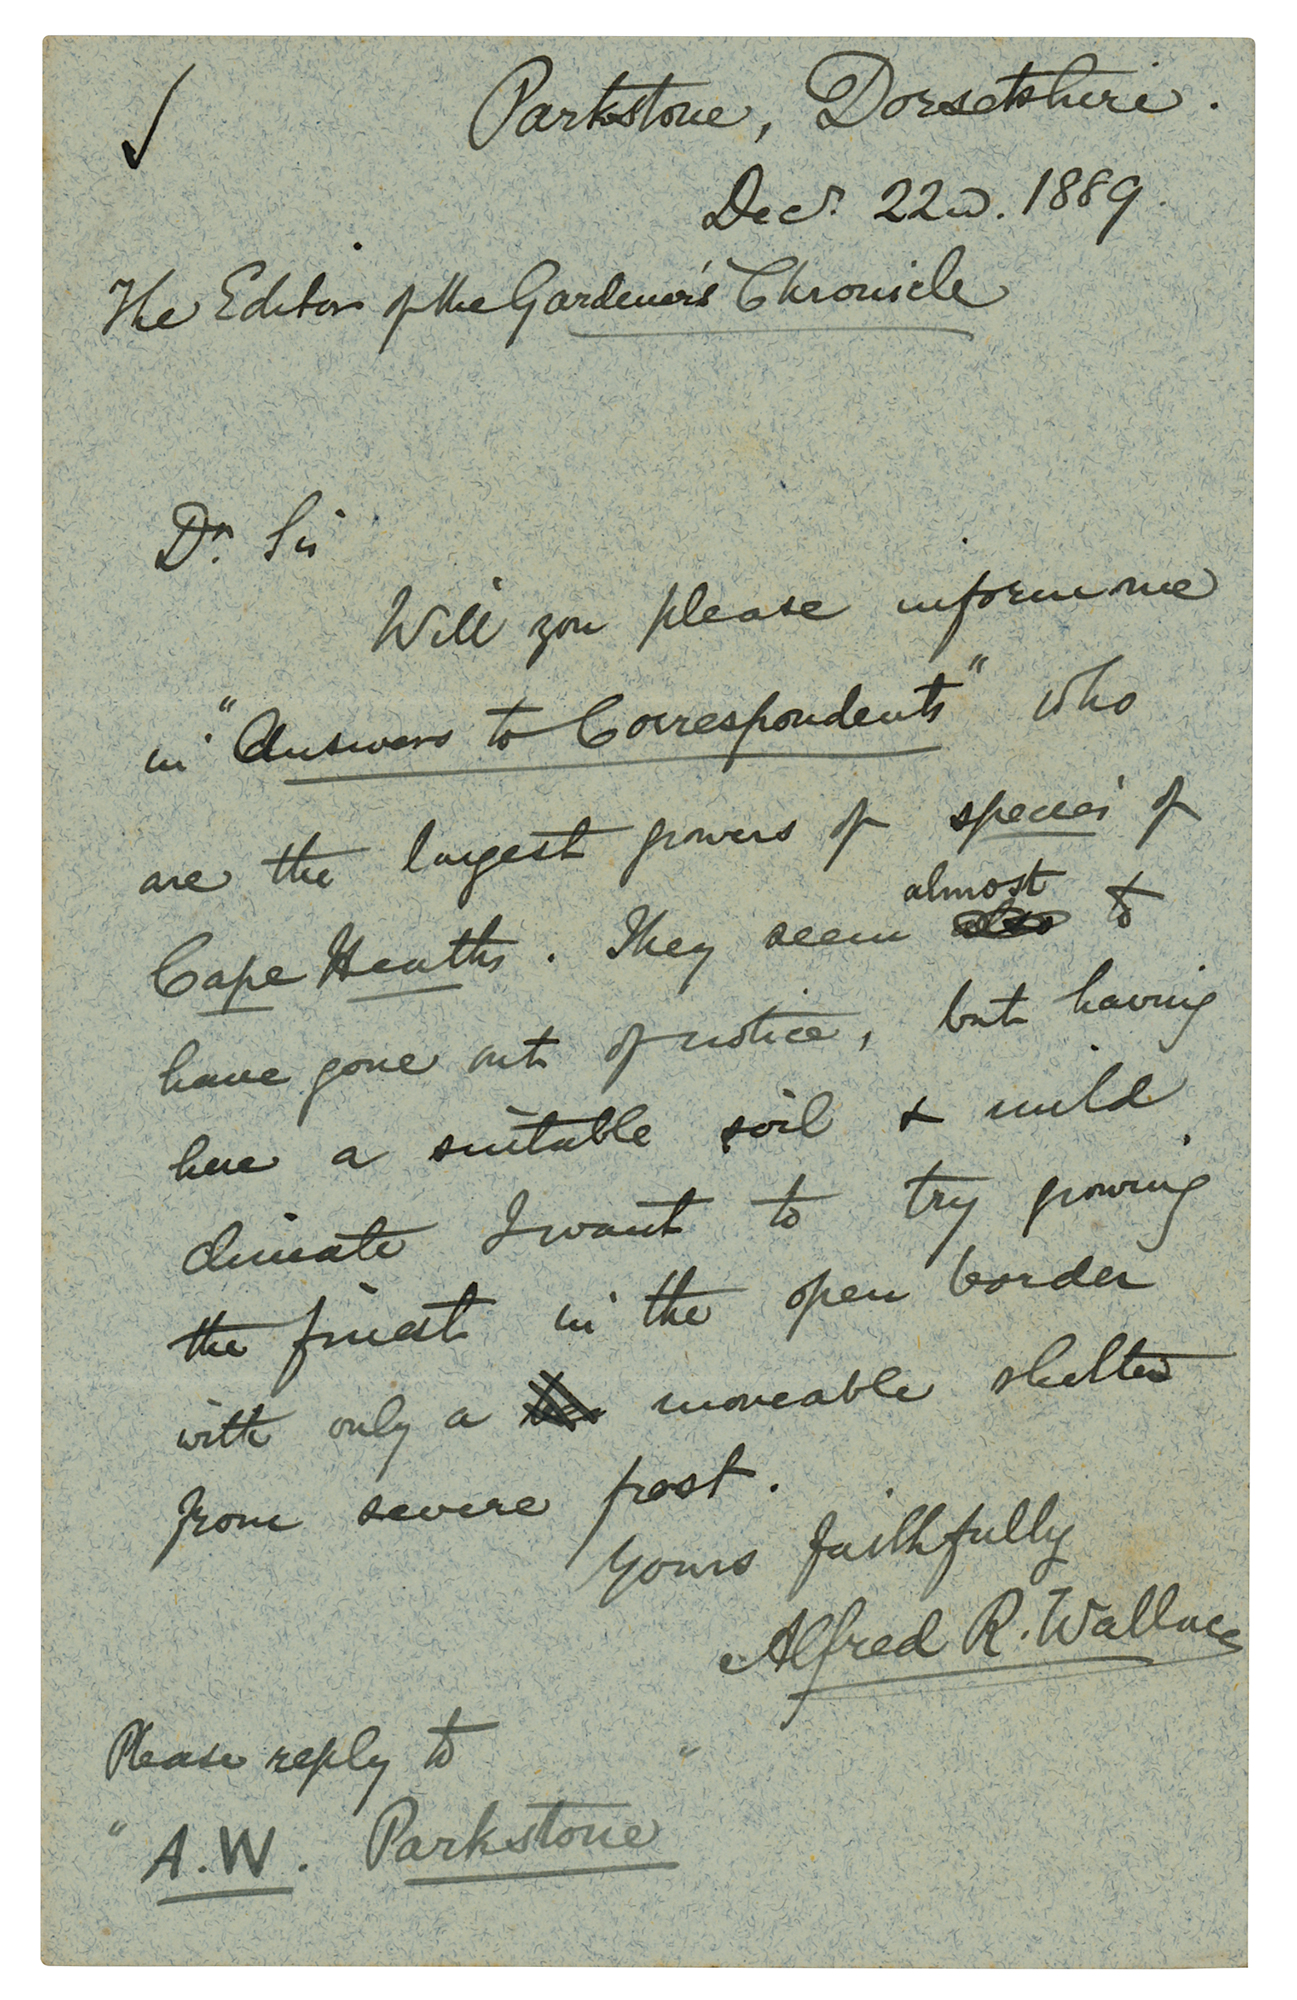 Parkstone, Dorsetshire.
Decr. 22nd. 1889.
The Editor of the Gardener's Chronicle
Dr. Sir
Will you please inform me
in "Answers to Correspondents" who
are the largest growers of species of
Cape Heaths. They seem almost to
have gone out of notice, but having
here a suitable soil & mild
climate I want to try growing
the finest in the open border
with only a moveable shelter
from severe frost.
Yours faithfully
Alfred R. Wallace
Please reply to
"A.W. Parkstone"